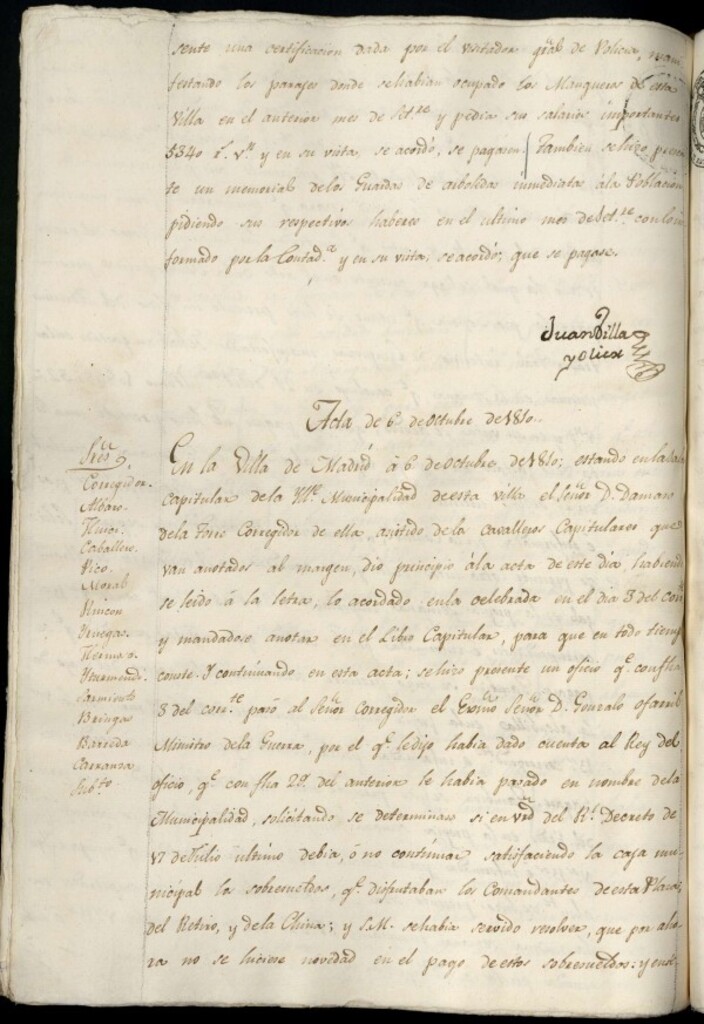 sente una certificacion dada por el visitador gral de Policia, mani
festando los parajes donde se habian ocupado los Mangueros de esta
Villa en el anterior mes de Set.re y pedia sus salarios importantes
5340 r.s v.n y en su vista, se acordó, se pagasen. Tambien se hizo presen
te un memorial de los Guardas de arboleda inmediata á la Poblacion
pidiendo sus respectivos haberes en el ultimo mes de Set.re con lo in
formado por la Contad.a y en su vista, se acordó, que se pagase.
Juan Villa
y Olier
Acta de 6 de Octubre de 1810.
Sres.
Corregidor.
Aldaro.
Caballero.
Pico.
Moral
Rincon
Venegas.
Hermoso.
Yturmendi.
Sarmiento
Bringas
Barreda
Carranza
En la Villa de Madrid á 6 de Octubre de 1810; estando en la Sala
capitular de la Yll.e Municipalidad de esta villa el Señor D. Damaso
de la Torre Corregidor de ella, asistido de los cavalleros Capitulares que
van anotados al margen, dio principio á la acta de este dia habiendo
se leido á la letra, lo acordado en la celebrada en el dia 3 del corr.te
y mandadose anotar en el Libro Capitular, para que en todo tiempo
conste. Y continuando en esta acta; se hizo presente un oficio q.e con fha
3 del corr.te pasó al Señor Corregidor el Exmo Señor D. Gonzalo ofarril
Ministro de la Guerra, por el q.e le dijo habia dado cuenta al Rey del
oficio, q.e con fha 29 del anterior le habia pasado en nombre de la
Municipalidad, solicitando se determinase si en vrd del R.l Decreto de
17 de Julio ultimo debia, ó no continuar satisfaciendo la caja mu-
nicipal los sobresueldos, q.e disfrutaban los Comandantes de esta Plaza,
del Retiro, y de la China; y S.M. se habia servido resolver, que por aho-
ra no se hiciese novedad en el pago de estos sobresueldos: y en su